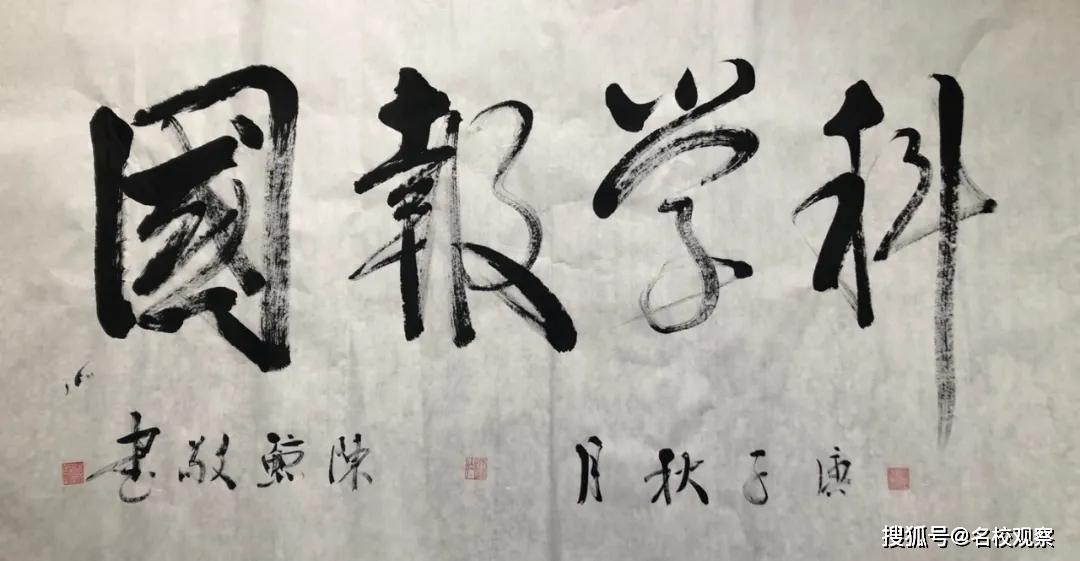 科学報國
庚子秋月
陳鯨敬書
搜狐号@名校观察